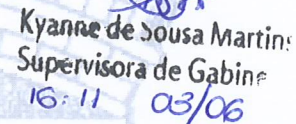 Kyanne de Sousa Martins
Supervisora de Gabine
16:11 03/06